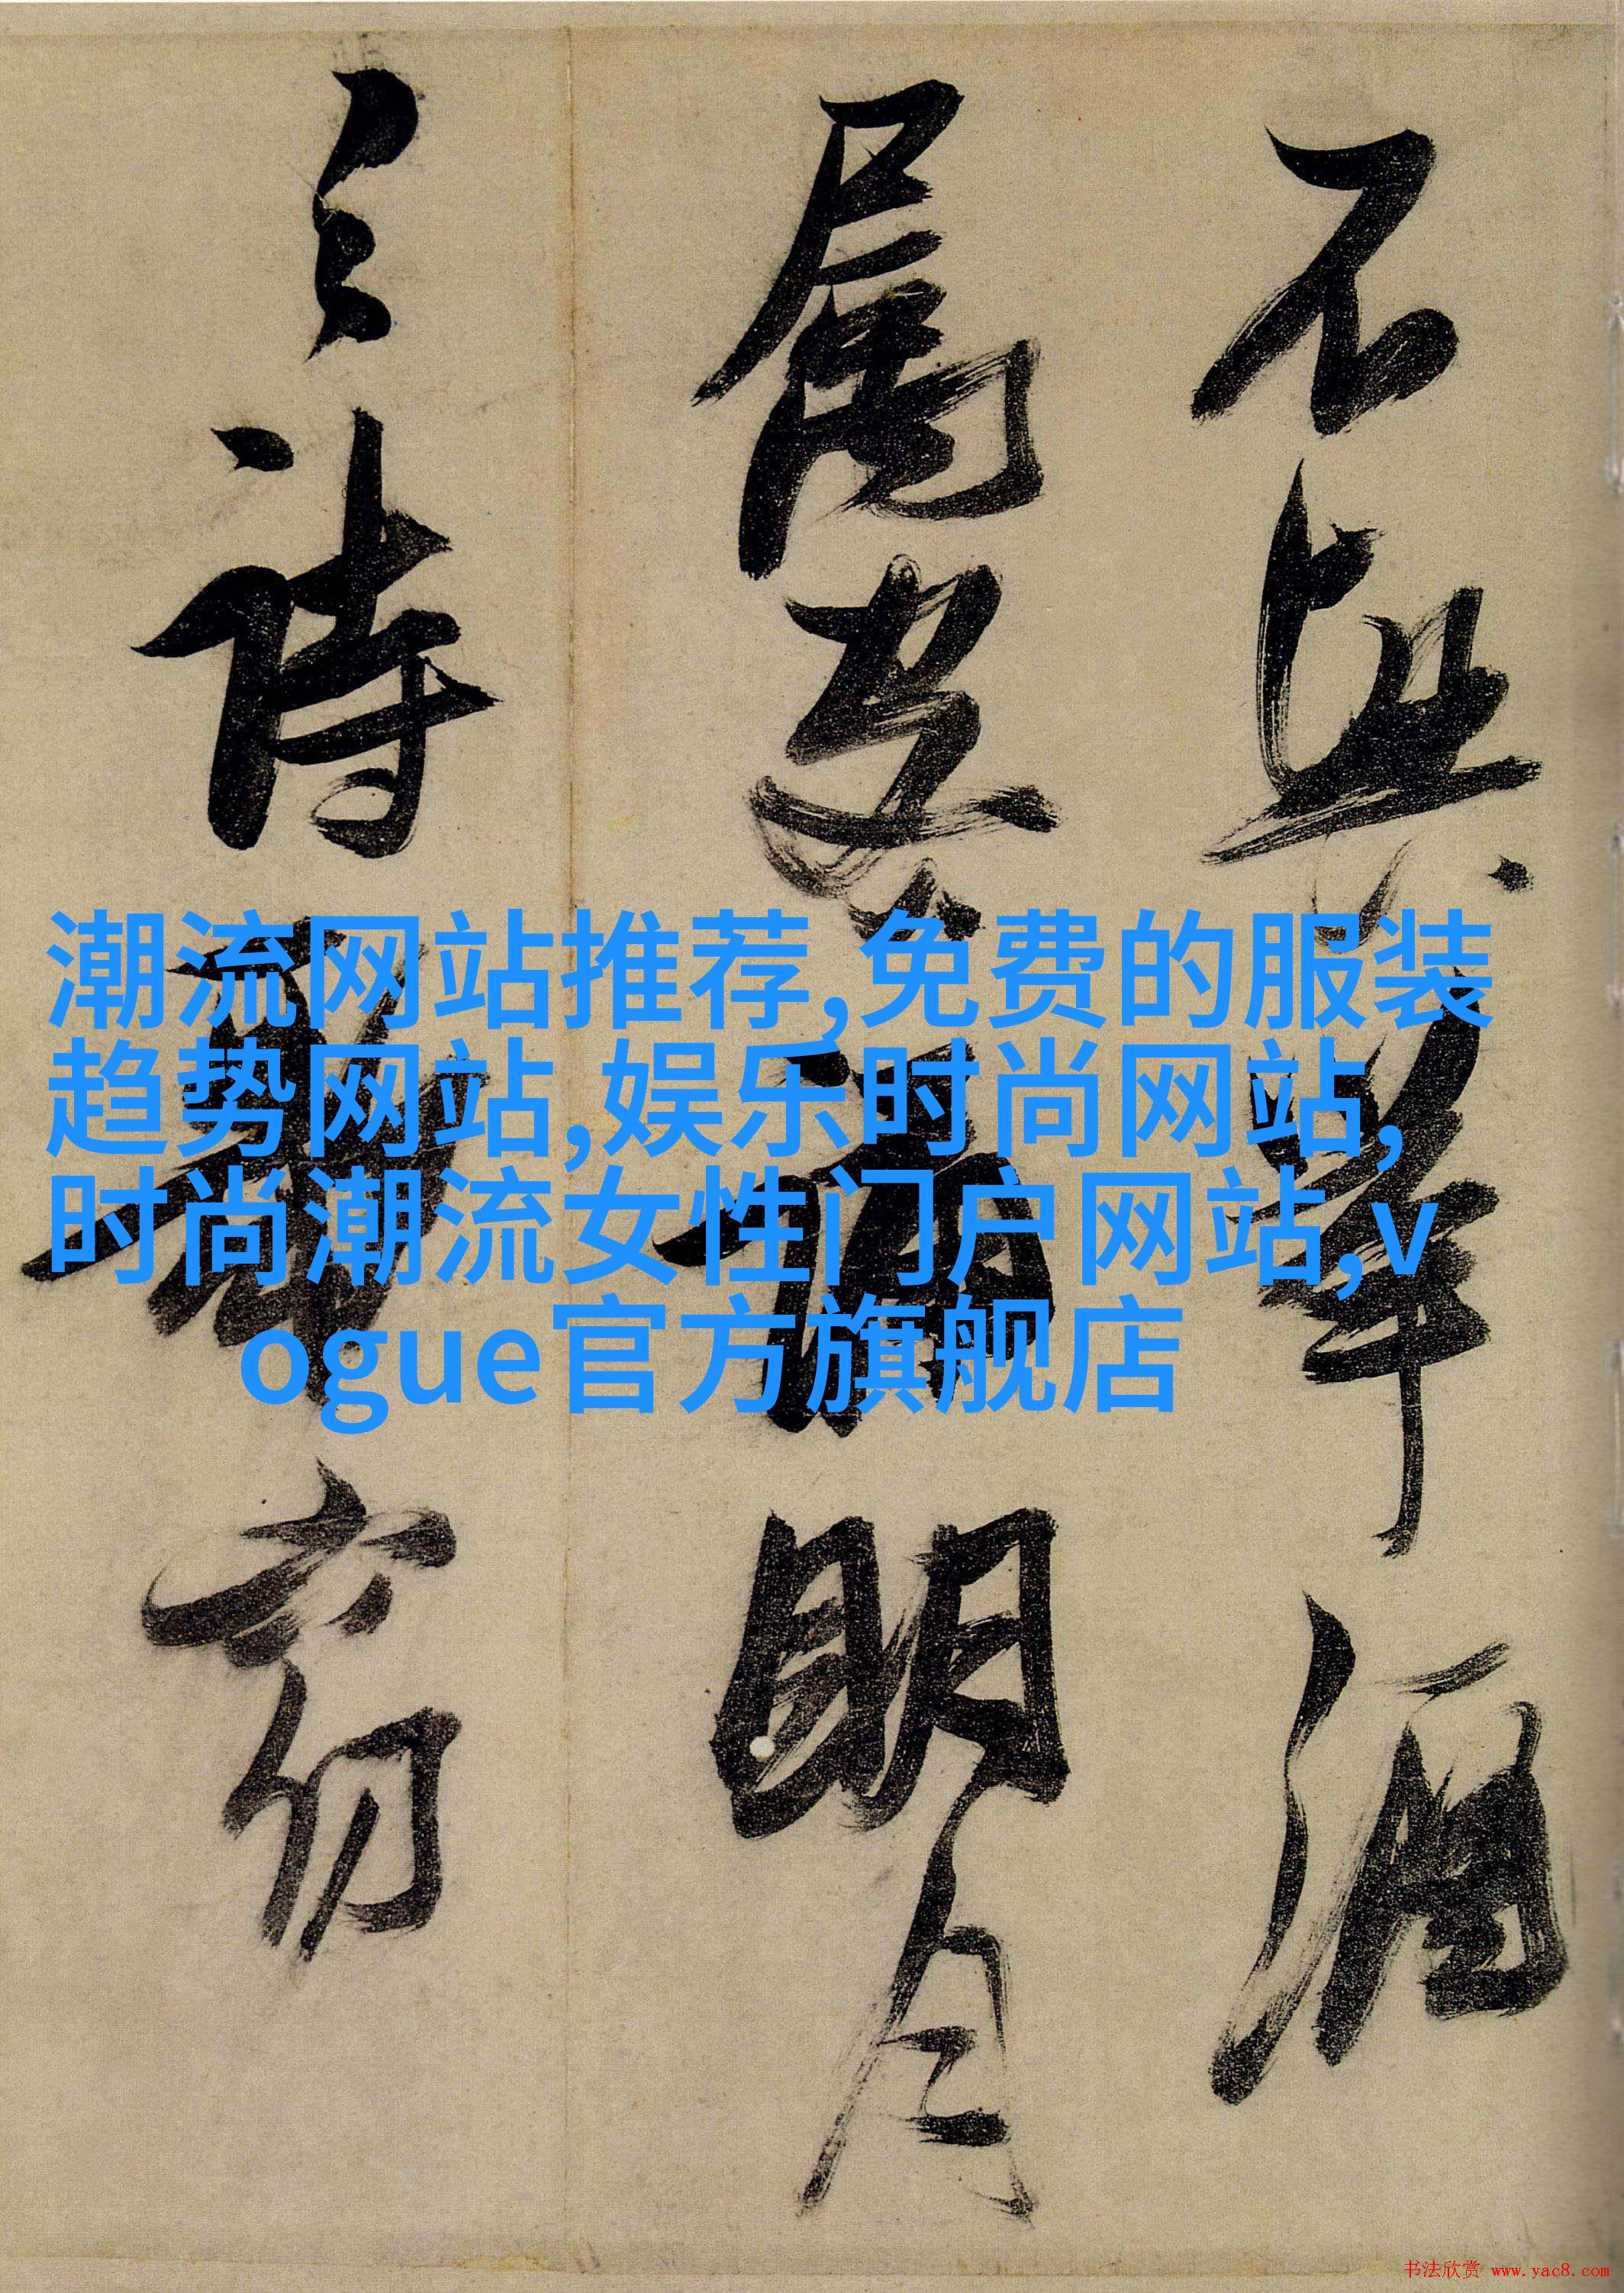 不興舉酒
屬客誦明月
之詩歌窈
潮流网站推荐,免费的服装
趋势网站,娱乐时尚网站,
时尚潮流女性门户网站,v
ogue官方旗舰店
书法欣赏 www.yac8.com